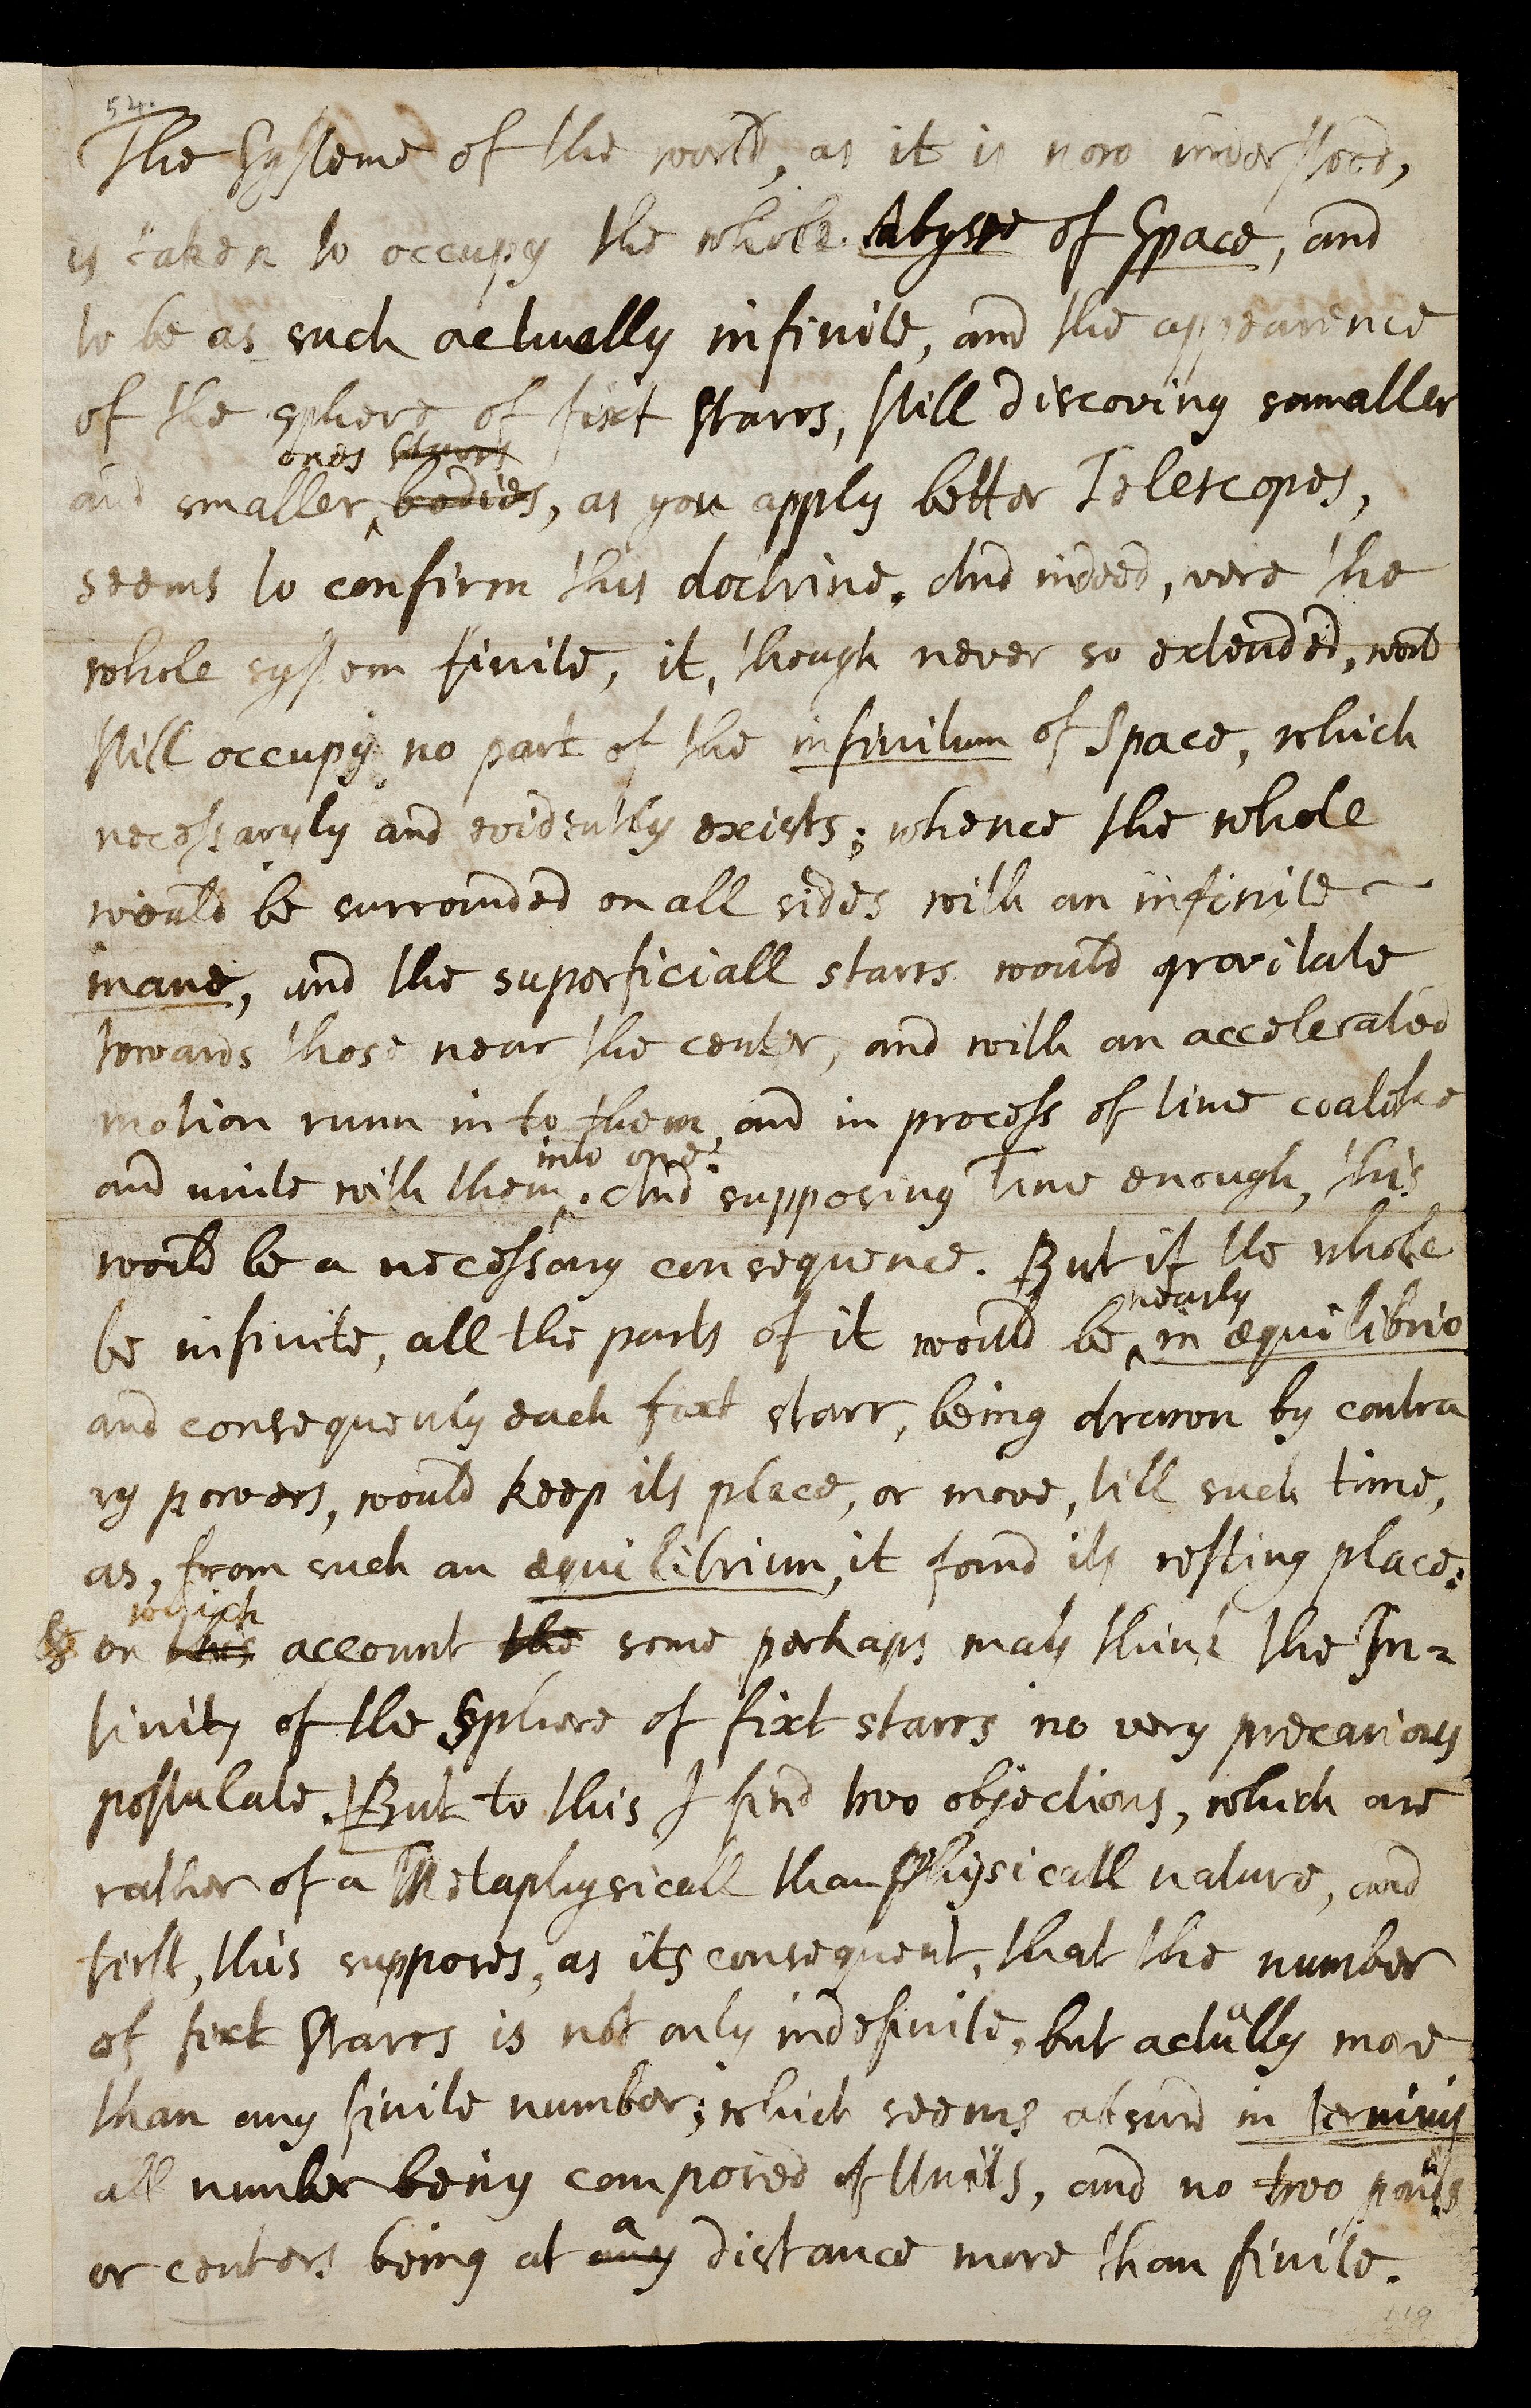 54.
The Systeme of the world, as it is now understood,
is taken to occupy the whole Abysse of Space, and
to be as such actually infinite, and the appearence
of the sphere of fixt Starrs, still discovring smaller
ones Starrs
and smaller bodies, as you apply better Telescopes,
seems to confirm this doctrine. And indeed, were the
whole system finite, it, though never so extended, would
still occupy no part of the infinitum of Space, which
necessaryly and evidently exists; whence the whole
would be surrounded on all sides with an infinite
inane, and the superficiall starrs would gravitate
towards those near the center, and with an accelerated
motion runn in to them, and in process of time coalesce
into one.
and unite with them. And supposing Time enough, this
would be a necessary consequence. But if the whole
nearly
be infinite, all the parts of it would be in æquilibrio
and consequently each fixt starr, being drawn by contra
ry powers, would keep its place, or move, till such time,
as, from such an æquilibrium, it found its resting place:
which
& on this account the some perhaps may think the In=
finity of the Sphere of fixt starrs no very precarious
postulate. But to this I find two objections, which are
rather of a Metaphysicall than Physicall nature, and
first, this supposes, as its consequent, that the number
of fixt Starrs is not only indefinite, but actually more
than any finite number; which seems absurd in terminis
all number being composed of Unitts, and no two points
a
or centers being at any distance more than finite.
119